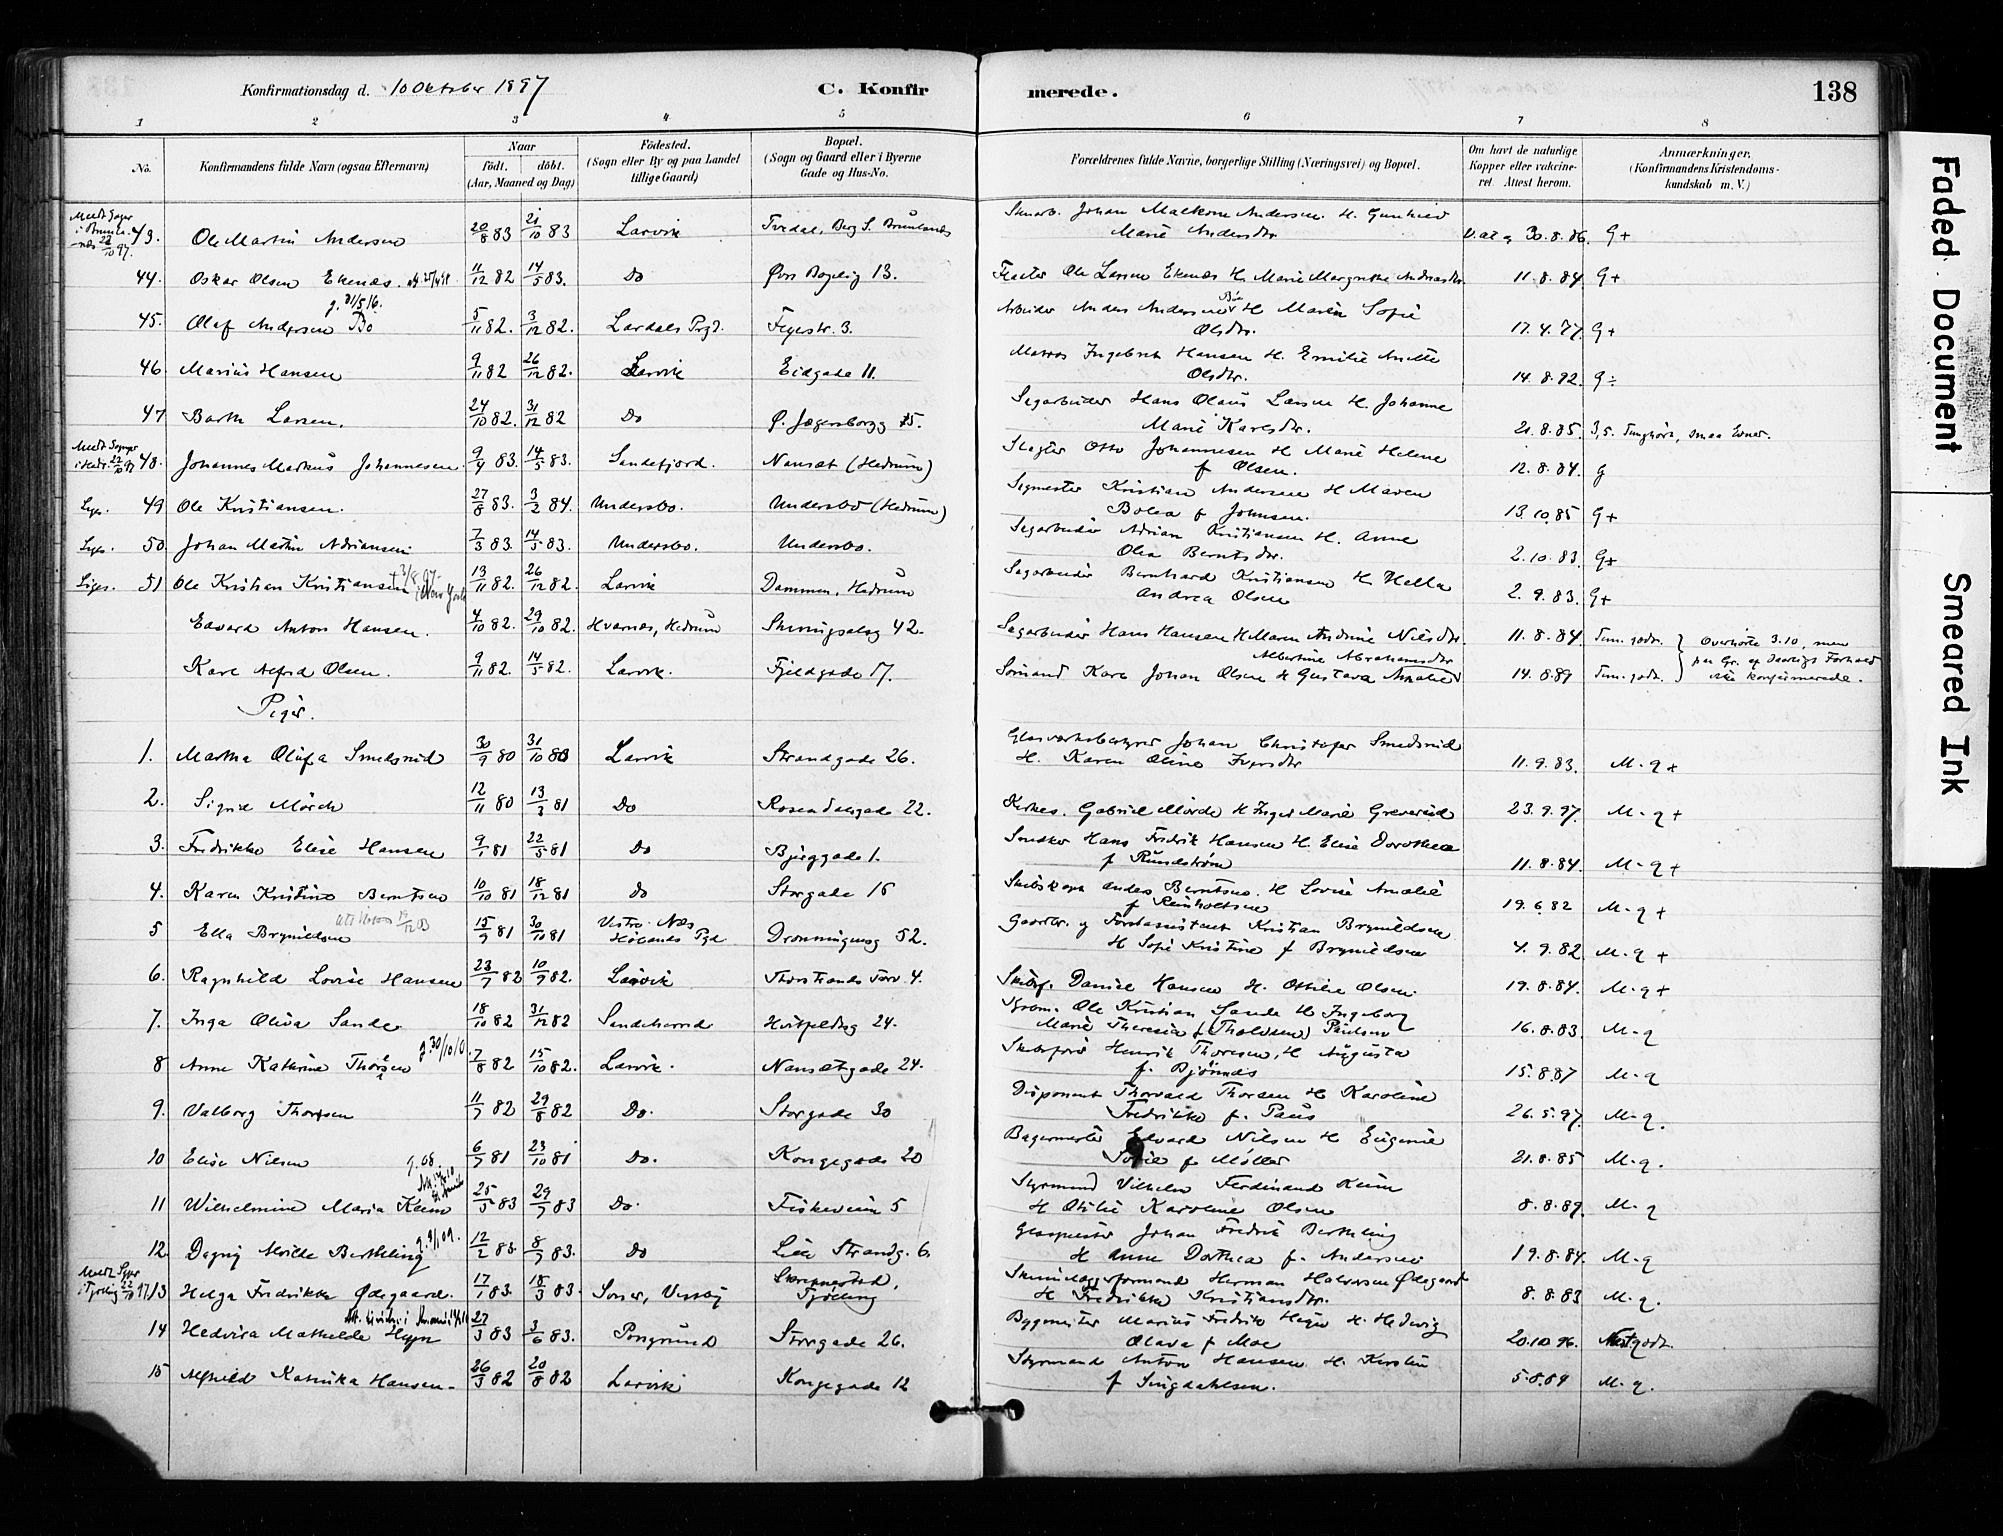 Konfirmationsdag d. 10 Oktober 1897 C. Konfir merede. 138
1 2 3 4 5 6 7 8
No. Konfirmandens fulde Navn (ogsaa Efternavn) Naar födt. döbt. (Aar, Maaned og Dag) Födested. (Sogn eller By og paa Landet tillige Gaard) Bopæl. (Sogn og Gaard eller i Byerne Gade og Hus-No. Forældrenes fulde Navne, borgerlige Stilling (Næringsvei) og Bopæl. Om havt de naturlige Kopper eller vakcineret. Attest herom. Anmærkninger. (Konfirmandens Kristendomskundskab m. V.)
43. Ole Martin Andersen 20/8 83 21/10 83 Larvik Tvedal, Berg S. Brunlanes Johan Andersen H. Gunhild Marie Andersdtr. 30.8.86. G+
44. Oskar Olsen Ekenæs 11/12 82 14/5 83. Do Øvre Bøgelig 13. Ole Larsen Ekenæs H. Marie Margrethe Andreasdtr 11.8.84 G+
g. 31/5 16.
45. Olaf Andersen Bø 5/11 82. 3/12 82. Lardals Prgd. Feyestr. 3. Arbeider Anders Andersen Bø H Maren Sofie Olsdtr. 17.4.77 G+
46 Marius Hansen 9/11 82 26/12 82. Larvik Eidgade 11. Matros Ingebret Hansen H. Emilie Anette Olsdtr. 14.8.92. G÷
47 Barth Larsen. 24/10 82. 31/12 82 Do Ø. Jegersborgg 15. Sagarbeider Hans Olaus Larsen H. Johanne Marie Karlsdtr. 21.8.85. Tunghørt, smaa Evner.
48. Johannes Markus Johannesen 9/4 83. 14/5 83. Sandefjord. Nanset (Hedrum) Slagter Otto Johannesen H Marie Helene f Olsen. 12.8.84. G
Liges. 49 Ole Kristiansen. 27/8 83. 3/2 84. Undersbo. Undersbo (Hedrum) Sagmester Kristian Andersen H Maren Bolea f Johnsen. 13.10.85 G+
Liges. 50. Johan Martin Adriansen 7/3 83. 14/5 83. Undersbo. Undersbo. Sagarbeider Adrian Kristiansen H. Anne Olea Berntsdtr. 2.10.83. G+
Liges. 51 Ole Kristian Kristiansen 13/11 82. 26/12 82. Larvik Dammen, Hedrum Sagarbeider Bernhard Kristiansen H. Hella Andrea Olsen 2.9.83. G+
Edvard Anton Hansen. 4/10 82. 29/10 82. Hvarnes, Hedrum 42. Sagarbeider Hans Hansen H Maren Andrine Nilsdtr. 11.8.84. Tem. godt. Overhørte 3.10, men
Karl Alfred Olsen. 9/11 82. 14/5 82. Larvik. Fjeldgade 17. Sømand Karl Johan Olsen H Gustava Amalie Albertine Abrahamsdtr 14.8.89 Tem. godt. paa Gr. af daarligt Forhold ikke konfirmerede.
Piger.
1. Martha Olufa Smedsrud 30/9 80 31/10 80 Larvik Strandgade 26. Johan Christofer Smedsrud H. Karen Oline Iversdtr 11.9.83. M-g+
2. Sigrid Mörch 12/11 80 13/3 81 Do Rosendalsgade 22. Gabriel Mörch H Inger Marie Greversud 23.9.97. M-g+
3. Fredrikke Elise Hansen 9/1 81 22/5 81 Do Bjerggade 1. Snedker Hans Fredrik Hansen H. Elise Dorothea f Rundstrøm 11.8.84. M-g+
4. Karen Kristine Berntsen 10/10 81 18/12 81 Do Storgade 15 Skibskapt. Anders Berntsen. H Lovise Amalie f Reinholtsen 19.6.82 M-g+
5 Ella Brynildsen 15/9 81 30/10 81 Vestre Næs Hölands Pgd Dronningensg 52. Gaardbr. og Forstassistent Kristian Brynildsen H Sofie Kristine f Brynildsen 4.9.82 M-g+
6. Ragnhild Lovise Hansen 23/7 82 10/9 82. Larvik Thorstrands Torv 4. Daniel Hansen H. Ottilie Olsen. 19.8.84. M-g+
7. Inga Oliva Sande. 18/10 82 31/12 82 Sandeherred Hvitfeldtsg 24. Ole Kristian Sande H Ingeborg Marie Theresia f (Tholdsen) Paulsen 16.8.83 M-g
8 Anne Kathrine Thorsen g. 30/10/0 7/8 82 15/10 82. Larvik. Nansetgade 24. Skibsfører Henrik Thoresen, H Augusta f. Bjönnes 15.8.87 M-g
9. Valborg Thorsen 11/7 82 29/8 82 Do. Storgade 30 Disponent Thorvald Thorsen H Karoline Fredrikke f. Paus 26.5.97. M-g.
10 Elise Nilsen 6/7 81 23/10 81 Do. Kongegade 20 Bagermester Edvard Nilsen H Eugenie Sofie f Møller 21.8.85 M-g.
11 Wilhelmine Maria Keim 25/5 83 29/7 83 Do. Fiskeveien 5 Styrmand Vilhelm Ferdinand Keim H Otilie Karoline Olsen 8.8.89. M-g
12. Dagny Alvilde Berthling g. 9/1 09. 12/2 83. 8/7 83. Do Lille Strandg. 6. Glaspuster Johan Fredrik Berthling H Anne Dorthea f. Andersen 19.8.84. M-g
13 Helga Fredrikke Ødegaard. 17/1 83. 18/3 83. Tjølling Herman Halvorsen Ødegaard H Fredrikke Kristiansdtr. 8.8.83 M-g.
14 Hedvica Mathilde Heyn 27/3 83 3/6 83. Porsgrund Storgade 26. Bygmester Marius Fredrik Heyn H. Hedevig Olava f Moe 20.10.96. Megt godt.
15 Alfhild Katinka Hansen. 26/3 82 20/8 82 Larvik Kongegade 12 Styrmand Anton Hansen H. Kirstin f Lingdahlsen. 5.8.89 M-g.
Faded Document
Smeared Ink